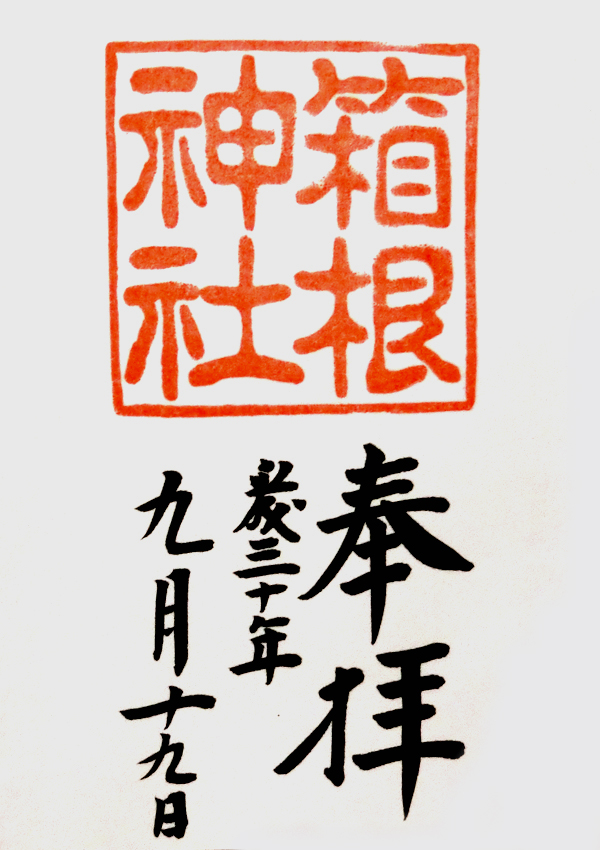 箱根
神社
奉拝
平成三十年
九月十九日